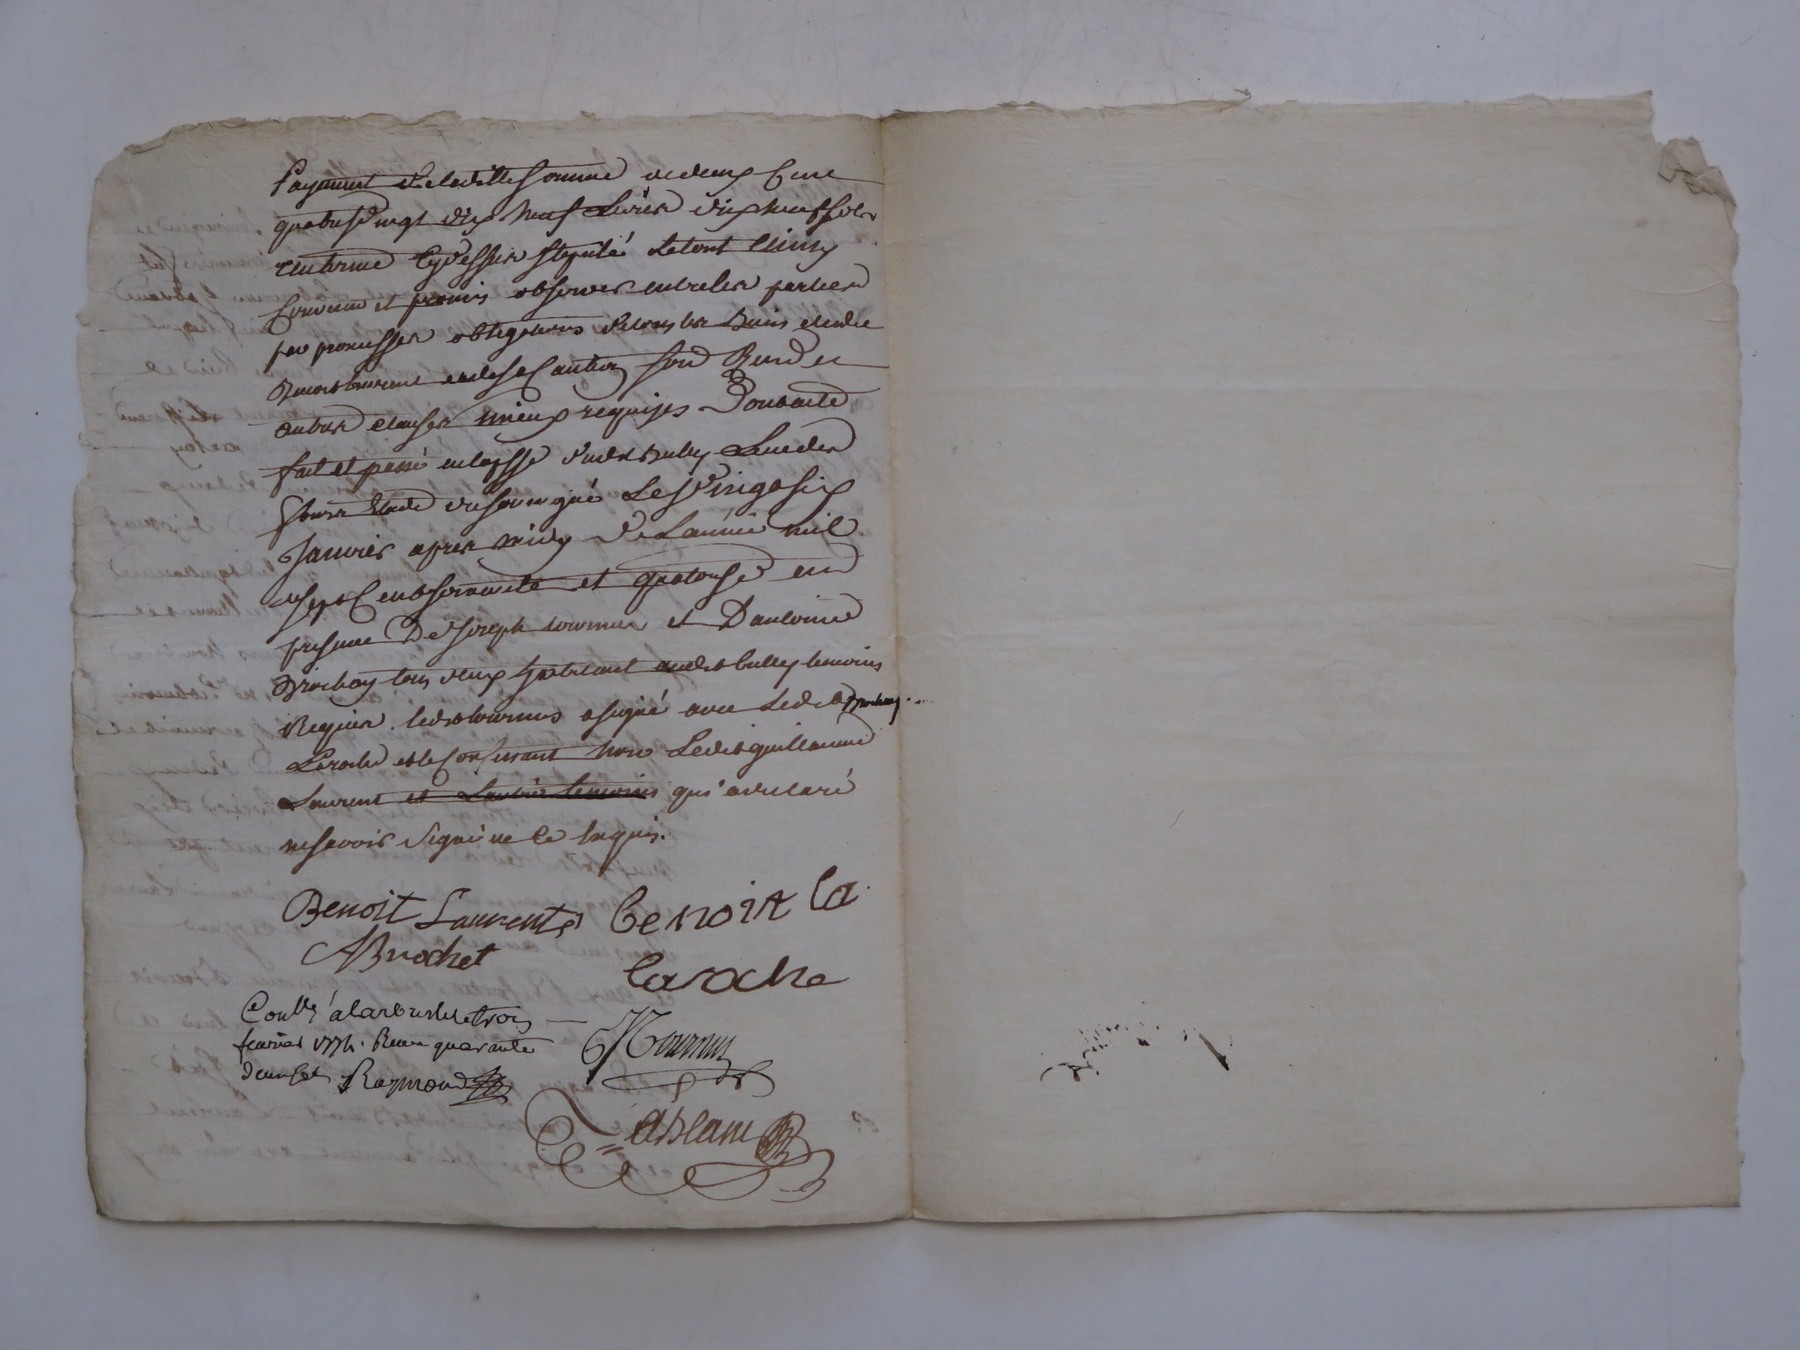 Payement de laditte somme de deux Cent
quatre vingt dix neuf Livres dix neuf sols
au terme Cy dessus stipulé Le tout ainsy
Convenu et promis observer entre les parties
par promesses obligations de tous les Biens et ledit
Benoit laurent et de sa Caution
autres clauses mieux requises Dont acte
fait et passé St bulley
Etude du soussigné Le Vingt six
Janvier apres midy De L'année mil
sept Cent soixante et quatorse en
presence De Joseph tournus et D'antoine
Brochay tous deux habitant audit bulley temoins
Requis. ledit tournus a signé avec Ledit Brochay
Laroche et le Consinant non Ledit guillaume
Laurent et L'autre temoins qui a declaré
ne savoir signé de Ce Enquis.
Benoit Laurent Benoit la
ABrochet
laroche
Conllé à larbresle le trois
fevrier 1774. Reçu quarante
deux sols Raymond
JTournus